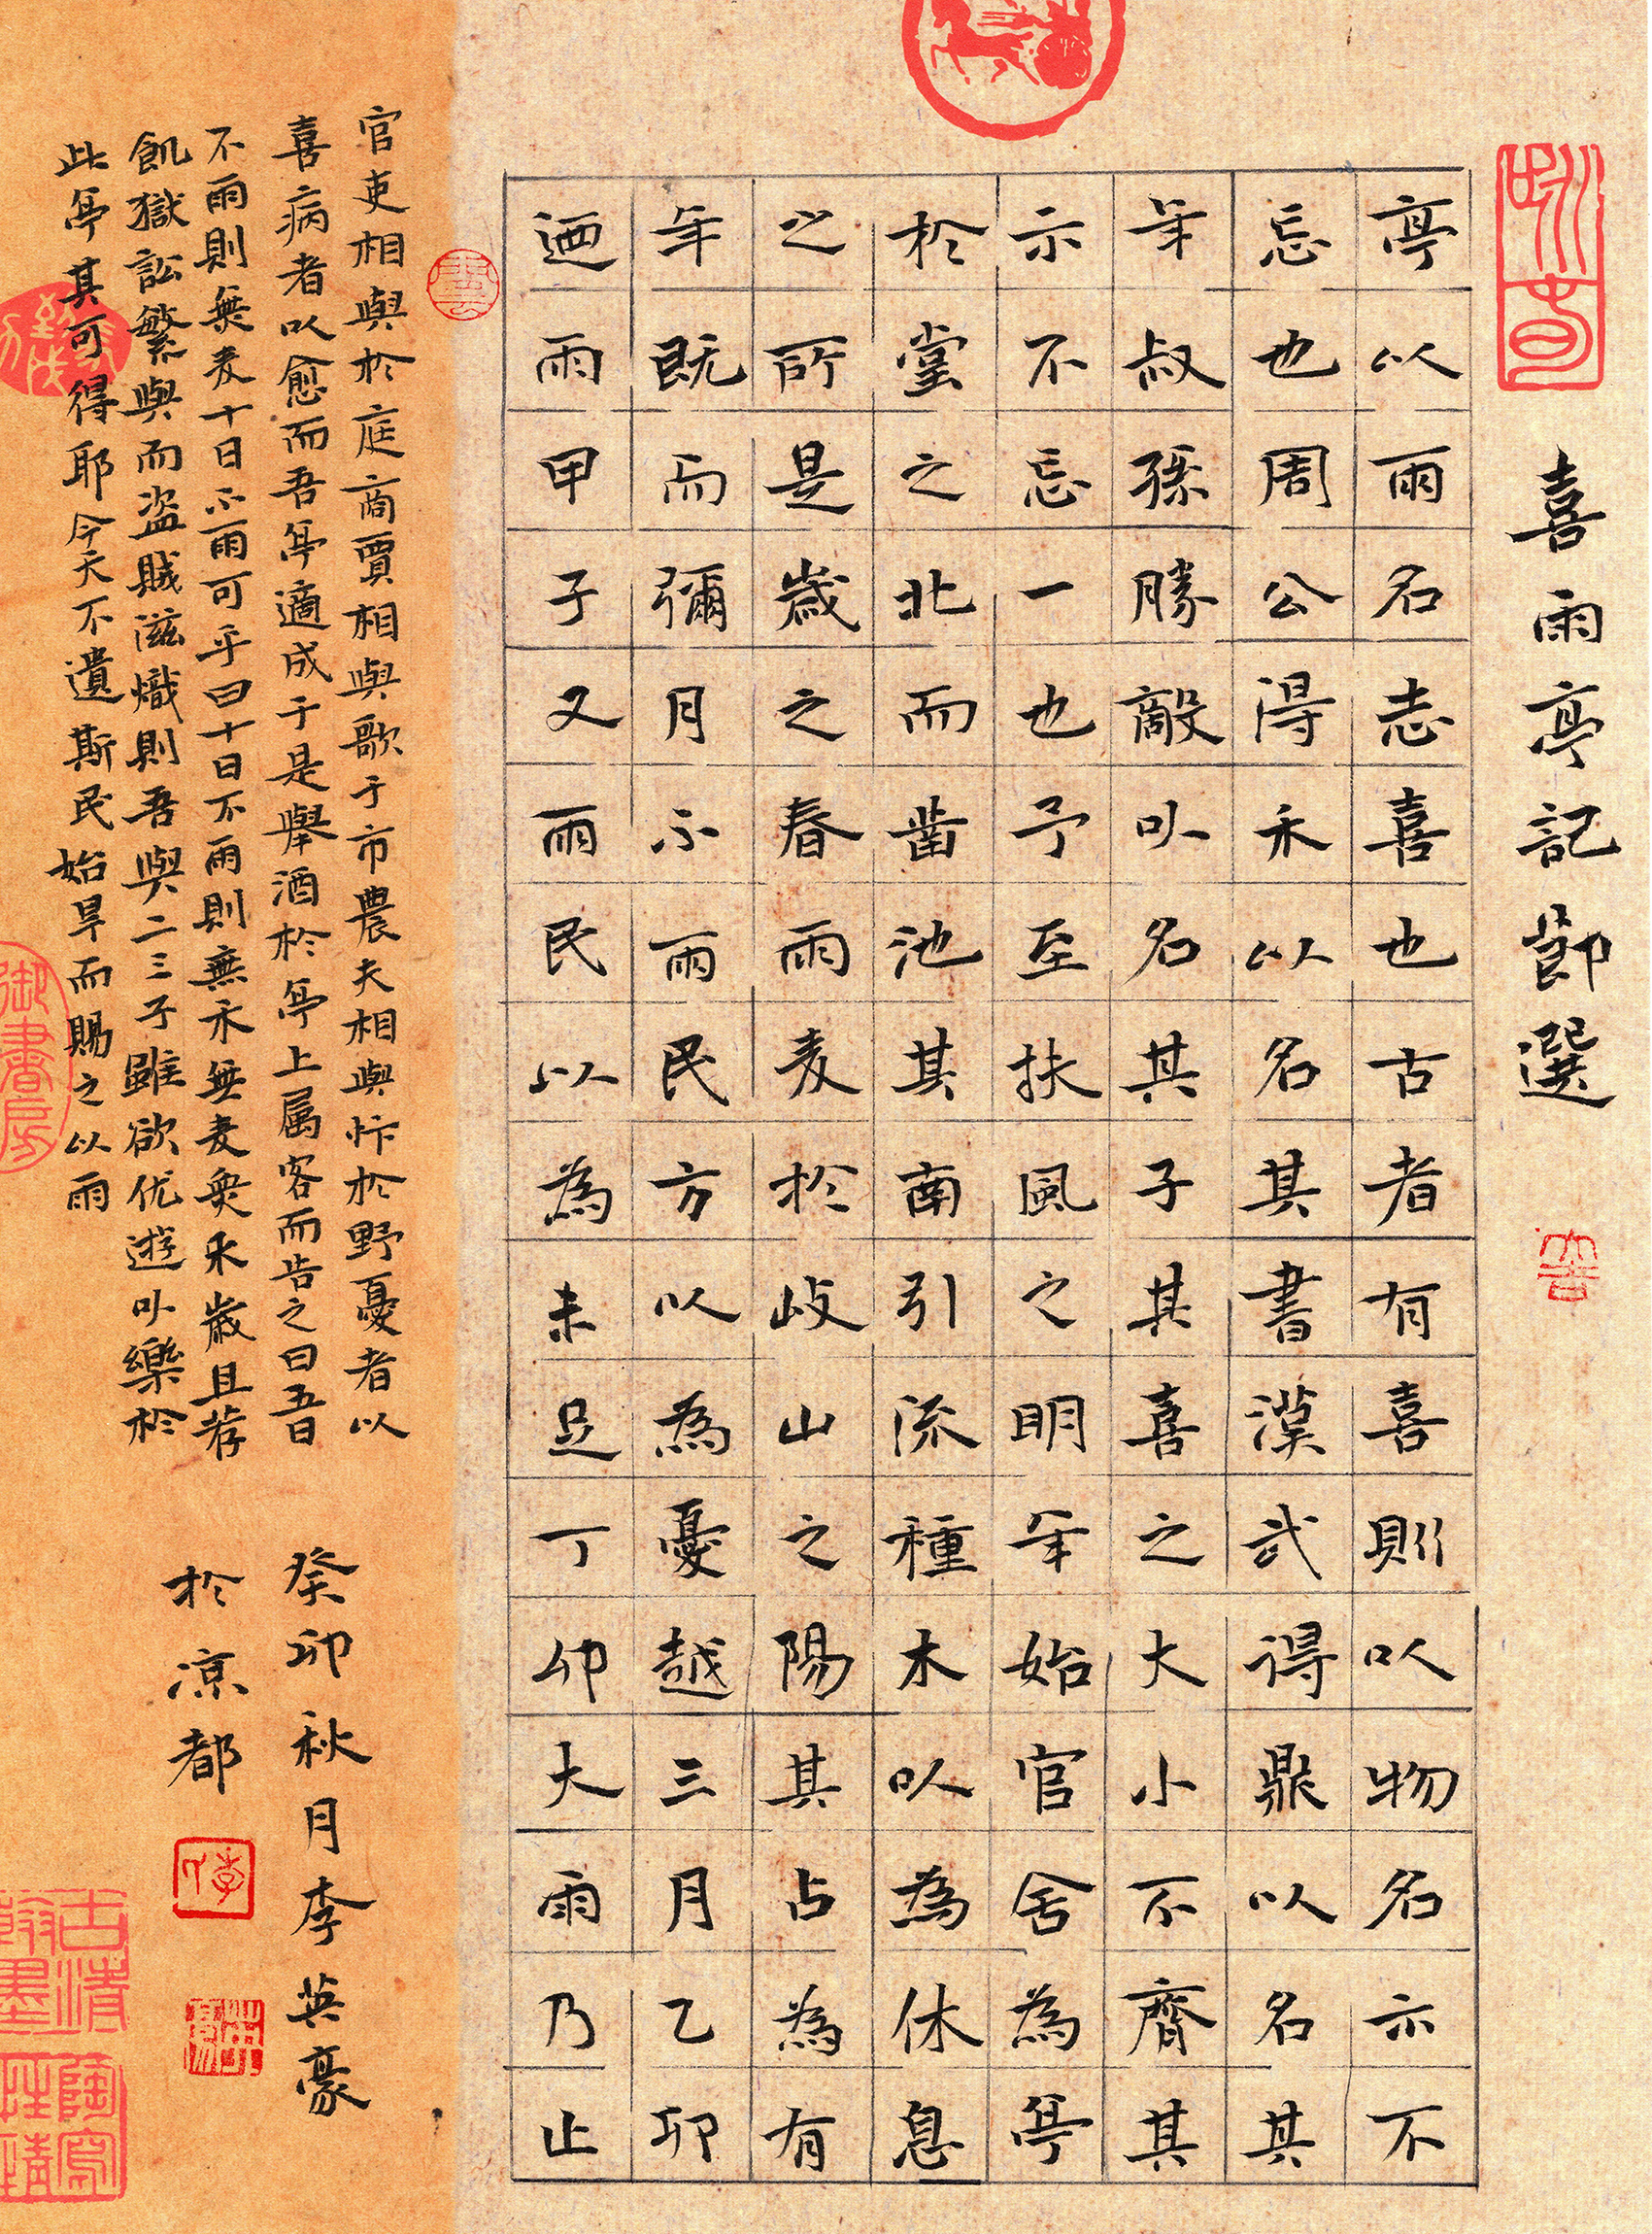 喜雨亭記節選
亭以雨名志喜也古者有喜則以物名示不
忘也周公得禾以名其書漢武得鼎以名其
年叔孫勝敵以名其子其喜之大小不齊其
示不忘一也予至扶風之明年始官舍為亭
於堂之北而凿池其南引流種木以為休息
之所是歲之春雨麦於岐山之陽其占為有
年既而彌月不雨民方以為憂越三月乙卯
迺雨甲子又雨民以為未足丁卯大雨乃止
官吏相與於庭商賈相與歌于市農夫相與忭於野憂者以
喜病者以愈而吾亭適成于是舉酒於亭上属客而告之曰五日
不雨則無麦十日不雨可乎曰十日不雨則無禾無麦無禾歲且荐
飢獄訟繁興而盗賊滋熾則吾與二三子雖欲优遊以樂於
此亭其可得耶今天不遺斯民始旱而賜之以雨
癸卯秋月李英豪
於凉都
御書房